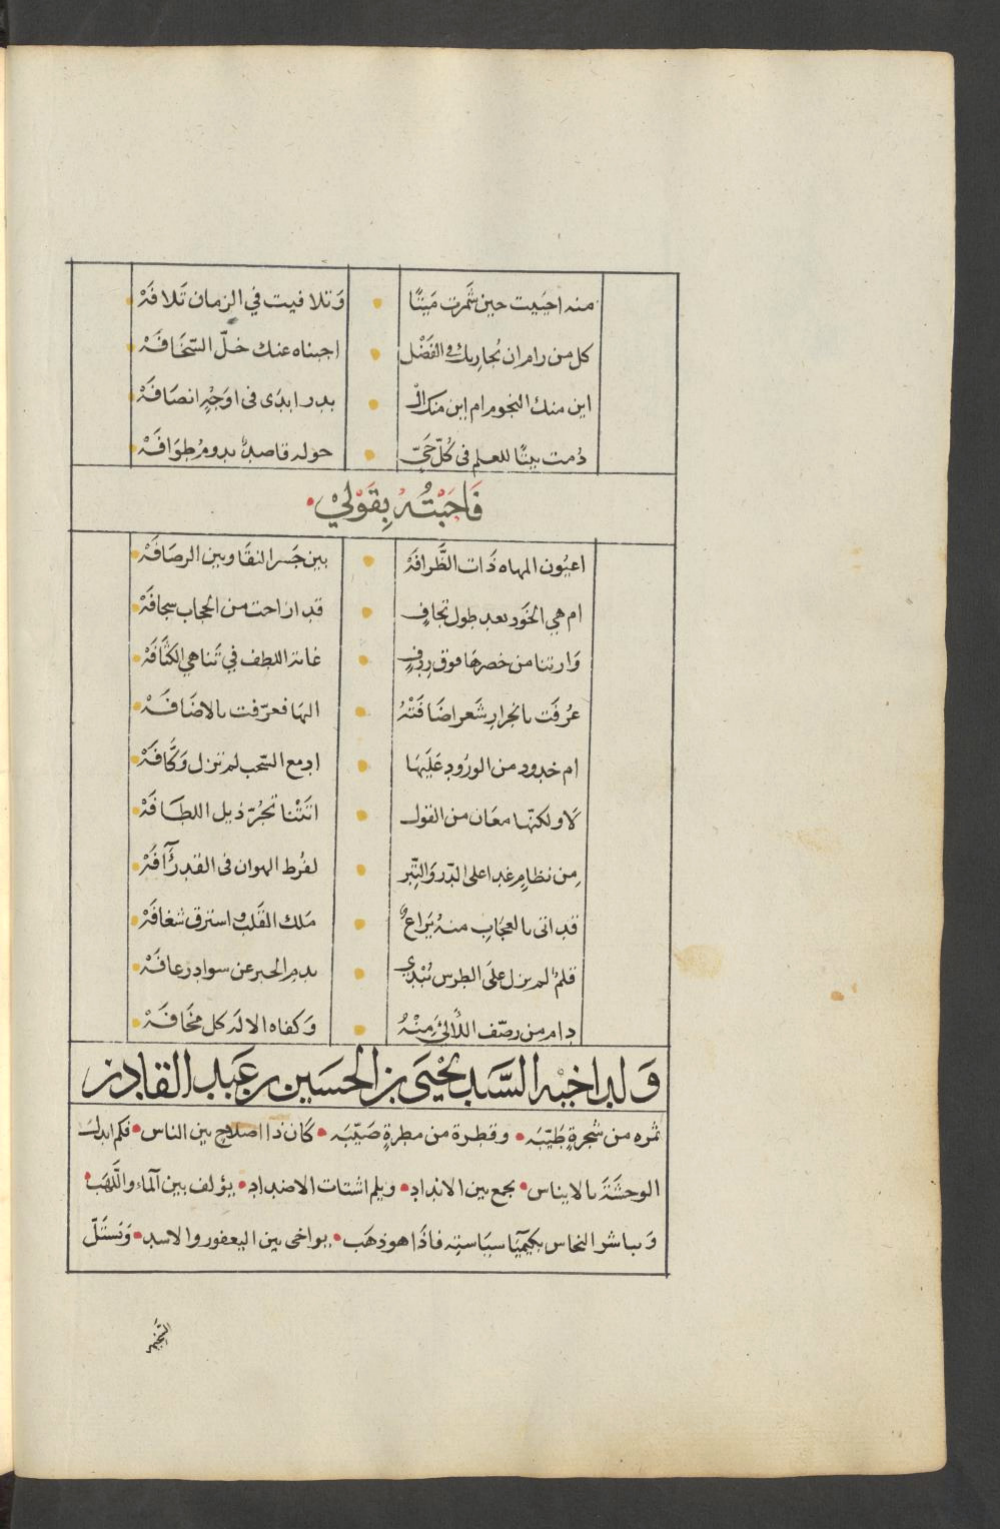 منه احييت حين ثمرت ميتًا • وتلافيت في الزمان تلافه
كل من رام ان يجاريك في الفضل • اجبناه عنك خلّ السّخافه
اين منك النجوم ام اين منك الـ • بدر ابدى في اوجه انصافه
دُمت بيتًا للعلم في كلّ حيّ • حوله قاصدٌ يدوم طوافه
فاجبته بقولي •
اعيون المهاه ذات الظّرافه • بين جسر النقا وبين الرصافه
ام هي الخود بعد طول تجافٍ • قد ازاحت من الحجاب سجافه
وارتنا من خصرها فوق ردفٍ • غاية اللطف في تناهي الكثافه
عرفت بانجرار شعر اضافته • اليها فعرّفت بالاضافه
ام خدود من الورود عليها • ادمع السّحب لم تزل وكّافه
لا ولكنّها معان من القول • اتتنا تجرّ ذيل اللطافه
من نظامٍ غدا على الدّر والتّبر • لفرط الهوان في القدر آفه
قد اتى بالعجاب منه يراعٌ • ملك القلب واسترق شغافه
قلمٌ لم يزل على الطرس يُبدي • بدم الحبر عن سوادٍ رعافه
دام من رصّف اللآلئ منه • وكفاه الاله كل مخافه
ولد اخيه السيد يحيى بن الحسين بن عبد القادر
ثمره من شجرةٍ طيّبه • وقطرة من مطرةٍ صيّبه • كان ذا اصلاح بين الناس • فكم ابدل
الوحشة بالايناس • يجمع بين الانداد • ويلم اشتات الاضداد • يؤلف بين الماء واللّهب •
ويباشر النحاس بكيميآ سياسته فاذا هو ذهب • يواخي بين اليعفور والاسد • وتستلّ